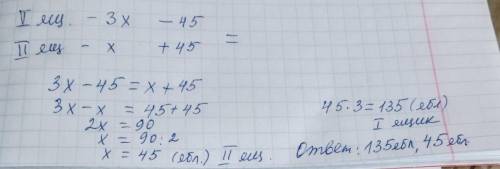 V ящ. - 3x - 45
II ящ - x + 45 =
3x - 45 = x + 45
3x - x = 45 + 45
2x = 90
x = 90 : 2
x = 45 (ябл.) II ящ.
45 · 3 = 135 (ябл)
I ящик
Ответ: 135 ябл, 45 ябл.